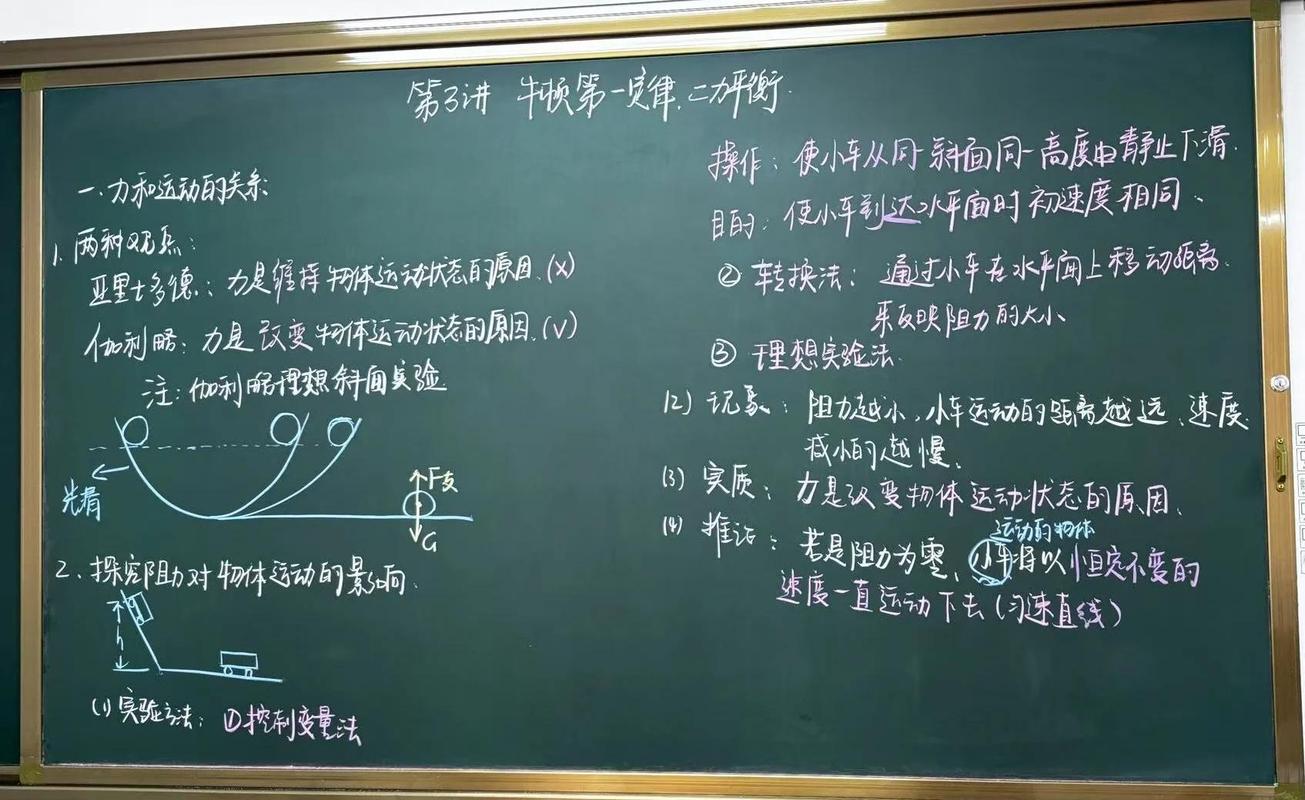 第3讲 牛顿第一定律、二力平衡.
一、力和运动的关系
1. 两种观点:
亚里士多德: 力是维持物体运动状态的原因. (×)
伽利略: 力是改变物体运动状态的原因. (√)
注: 伽利略理想斜面实验
光滑
F支
G
2. 探究阻力对物体运动的影响.
h
(1) 实验方法: ①控制变量法
操作: 使小车从同一斜面同一高度由静止下滑.
目的: 使小车到达水平面时初速度相同、
② 转换法: 通过小车在水平面上移动距离
来反映阻力的大小
③ 理想实验法.
(2) 现象: 阻力越小, 小车运动的距离越远、速度
减小的越慢、
(3) 实质: 力是改变物体运动状态的原因、
(4) 推论: 若是阻力为零、小车将以恒定不变的
运动的物体
速度一直运动下去(匀速直线)